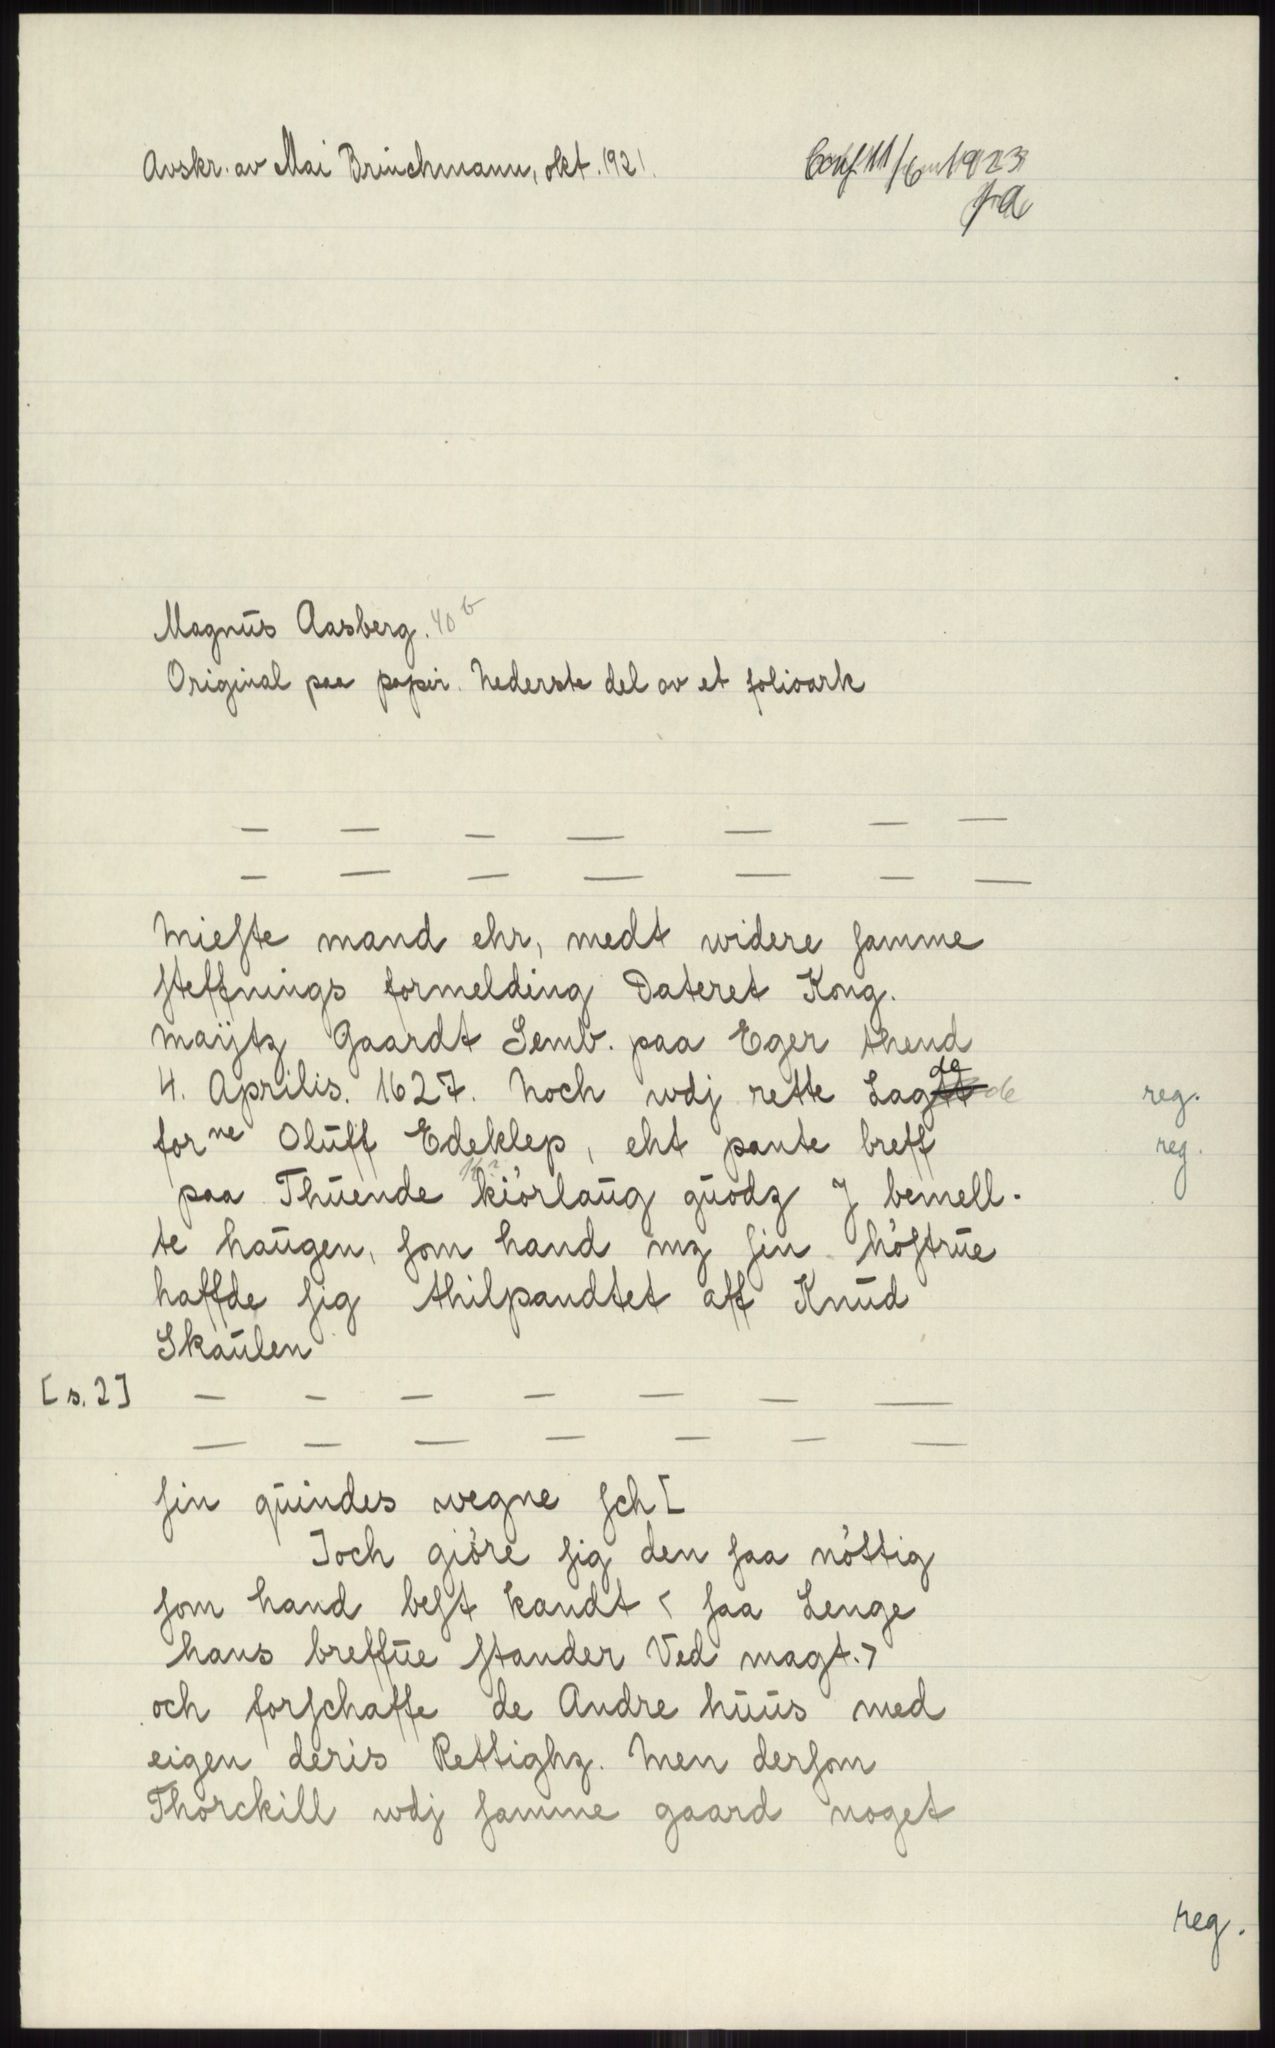 Avskr. av Mai Brinchmann, okt. 1921.
Conf 11/6 1923
Magnūs Aasberg. 40 b
Original paa papir. Nederste del av et folioark
— — — — — — —
— — — — — — —
Mieste mand ehr, medt widere samme
steffnings formelding Dateret Kong.
maÿtz Gaardt Semb. paa Eger thend
4. Aprilis. 1627. Noch wdj rette Lagde reg.
for ne Olūff Edeklep, eht pante breff reg.
paa Thūende kiörlaūg gūodz J bemell-
te haūgen, som hand mz sin höstrūe
haffde sig thilpandtet aff Knūd
Skaūlen
[s. 2] — — — — — — —
— — — — — — —
sin qūindes wegne sch[
]och giöre sig den saa nöttig
som hand best kandt < saa Lenge
hans breffūe stander Ved magt.>
och forschaffe de Andre hūūs med
eigen deris Rettighz. Men dersom
Thorckill wdj samme gaard noget
reg.